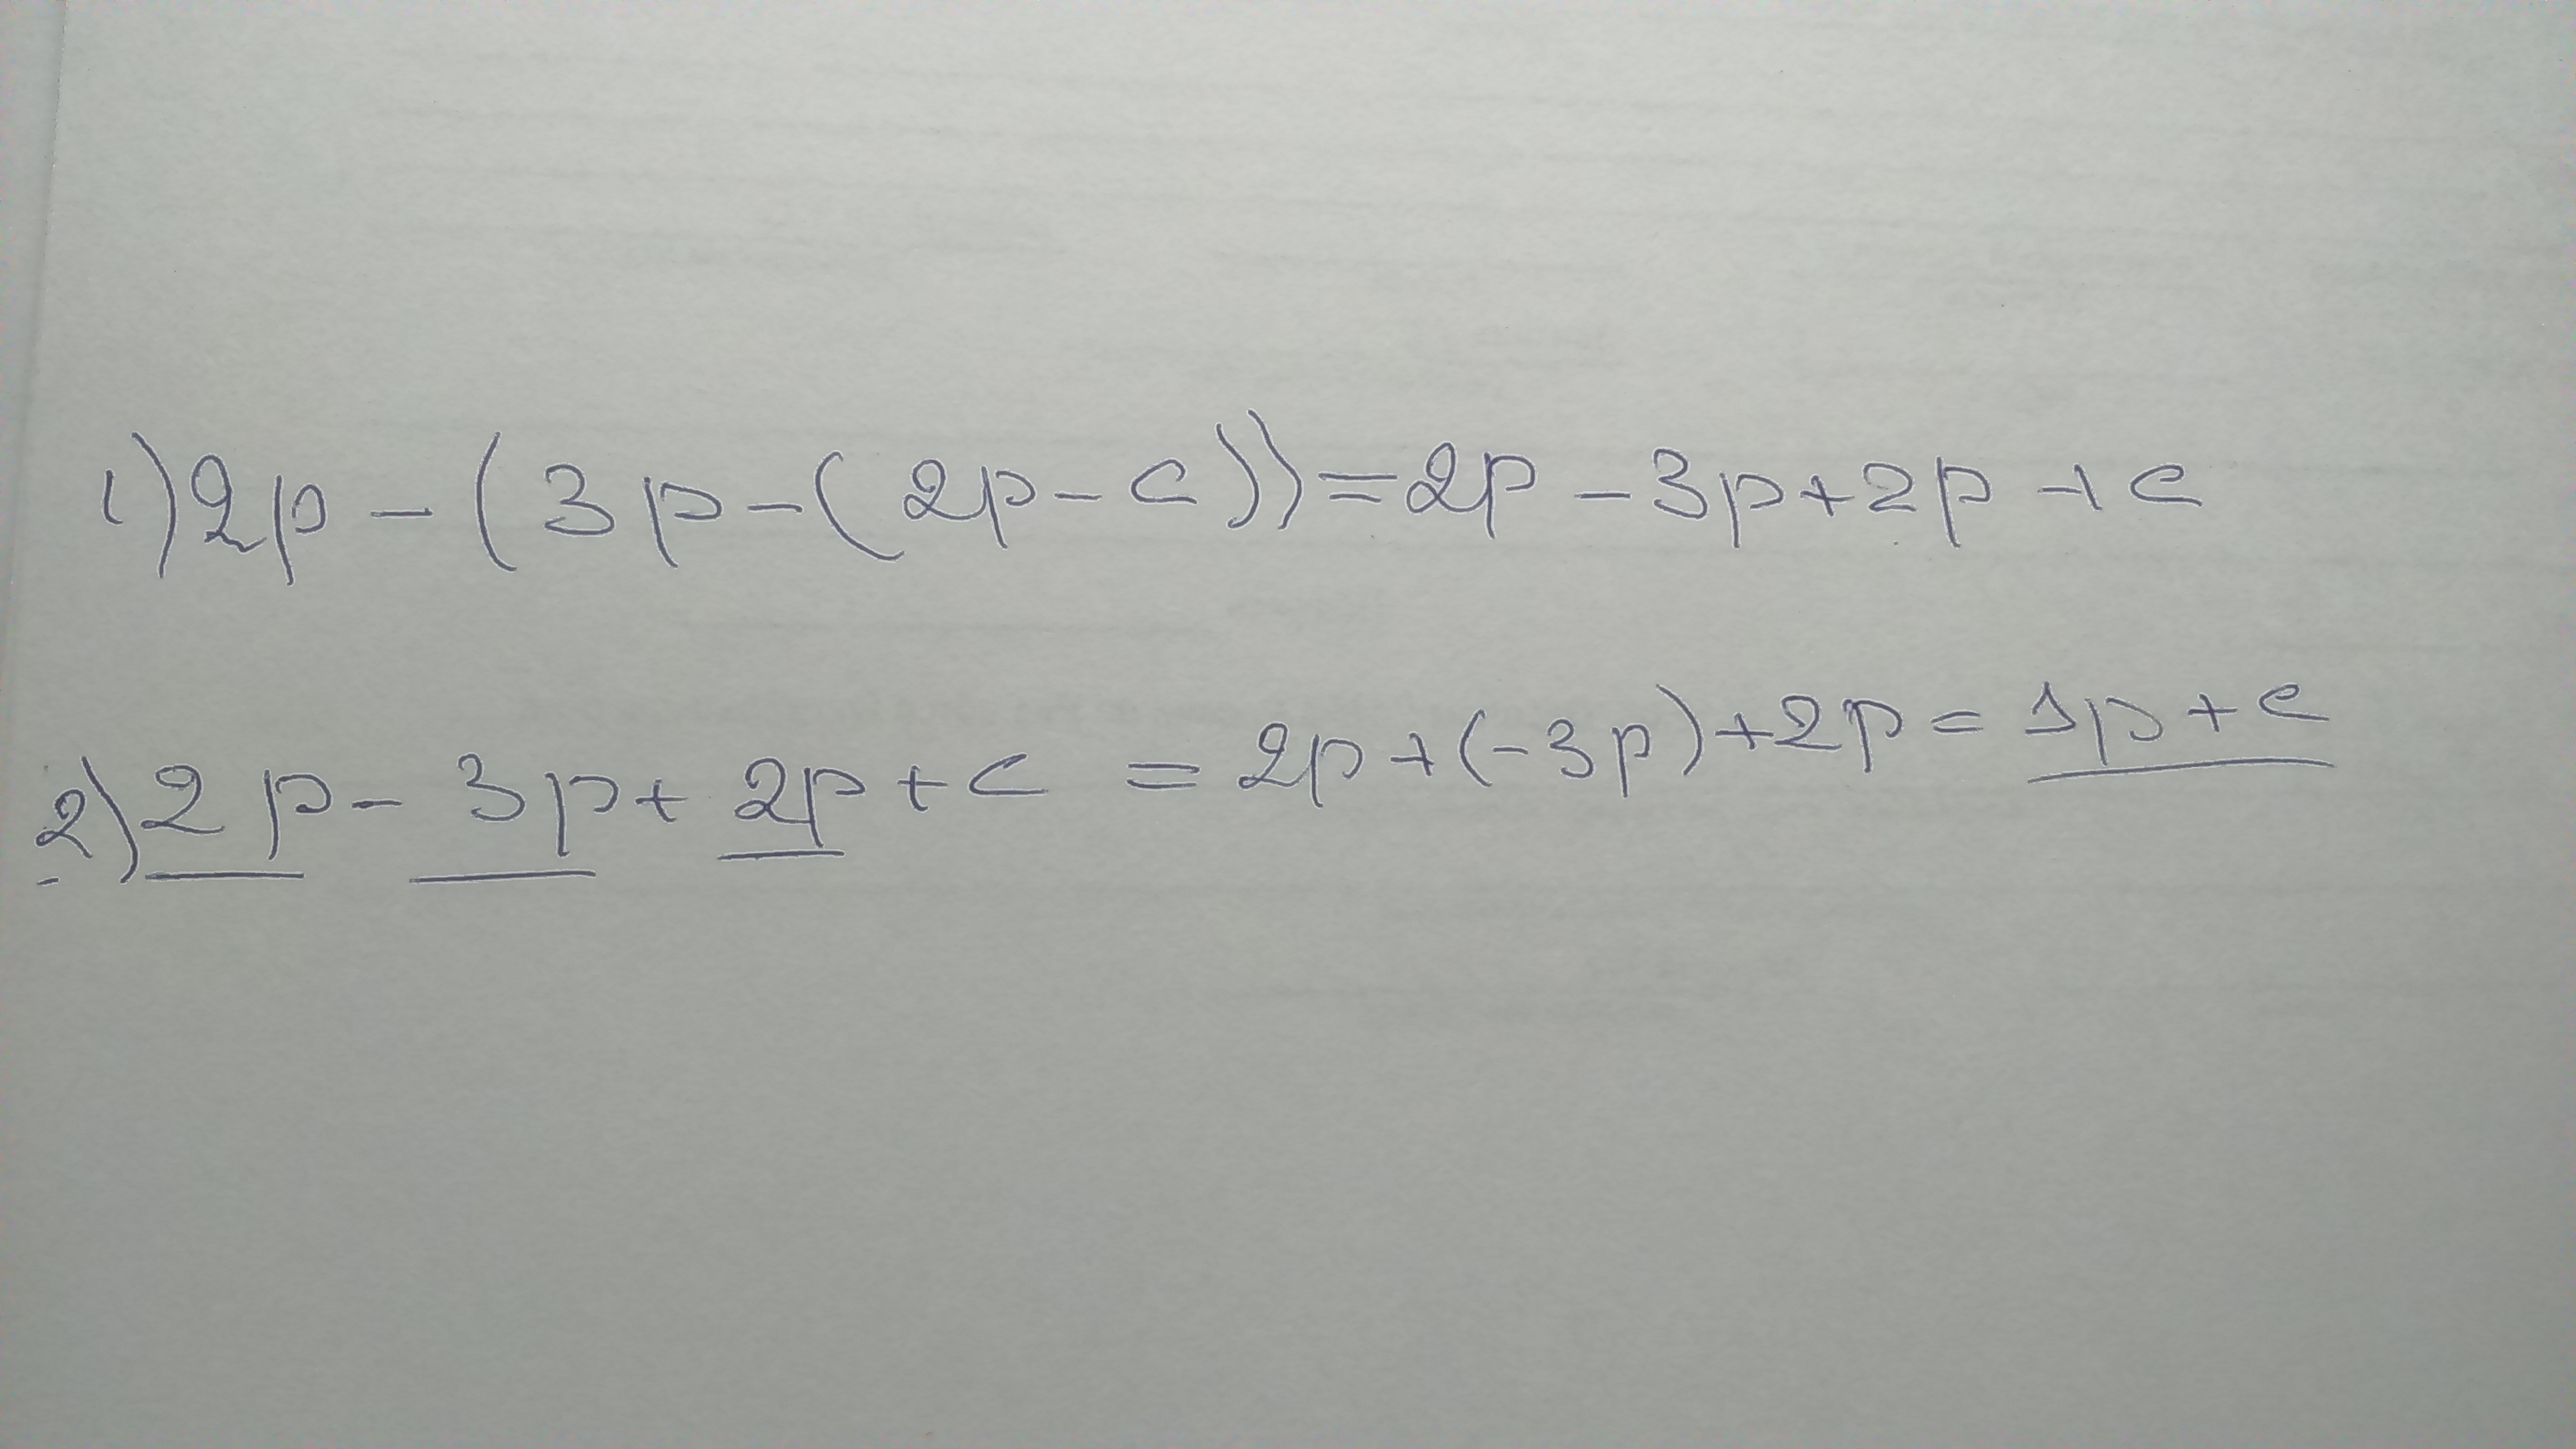 1) 2p - (3p - (2p - c)) = 2p - 3p + 2p + c
2) 2p - 3p + 2p + c = 2p + (-3p) + 2p = 1p + c